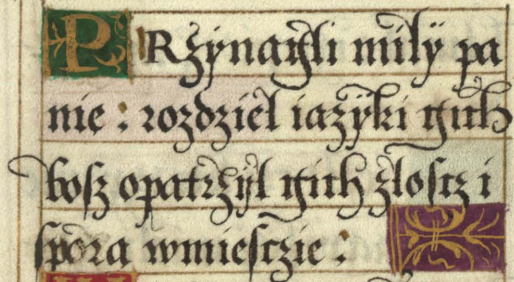 PRzÿnagli milÿ pa
nie : rozdziel iazÿki gich
bosz opatrzÿl gich zloscz i
spora wmiesczie :